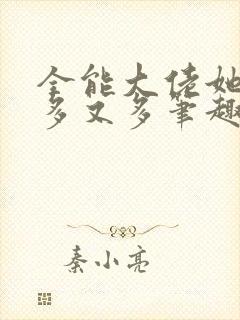 全能大佬她
多又多笔趣
秦小亮